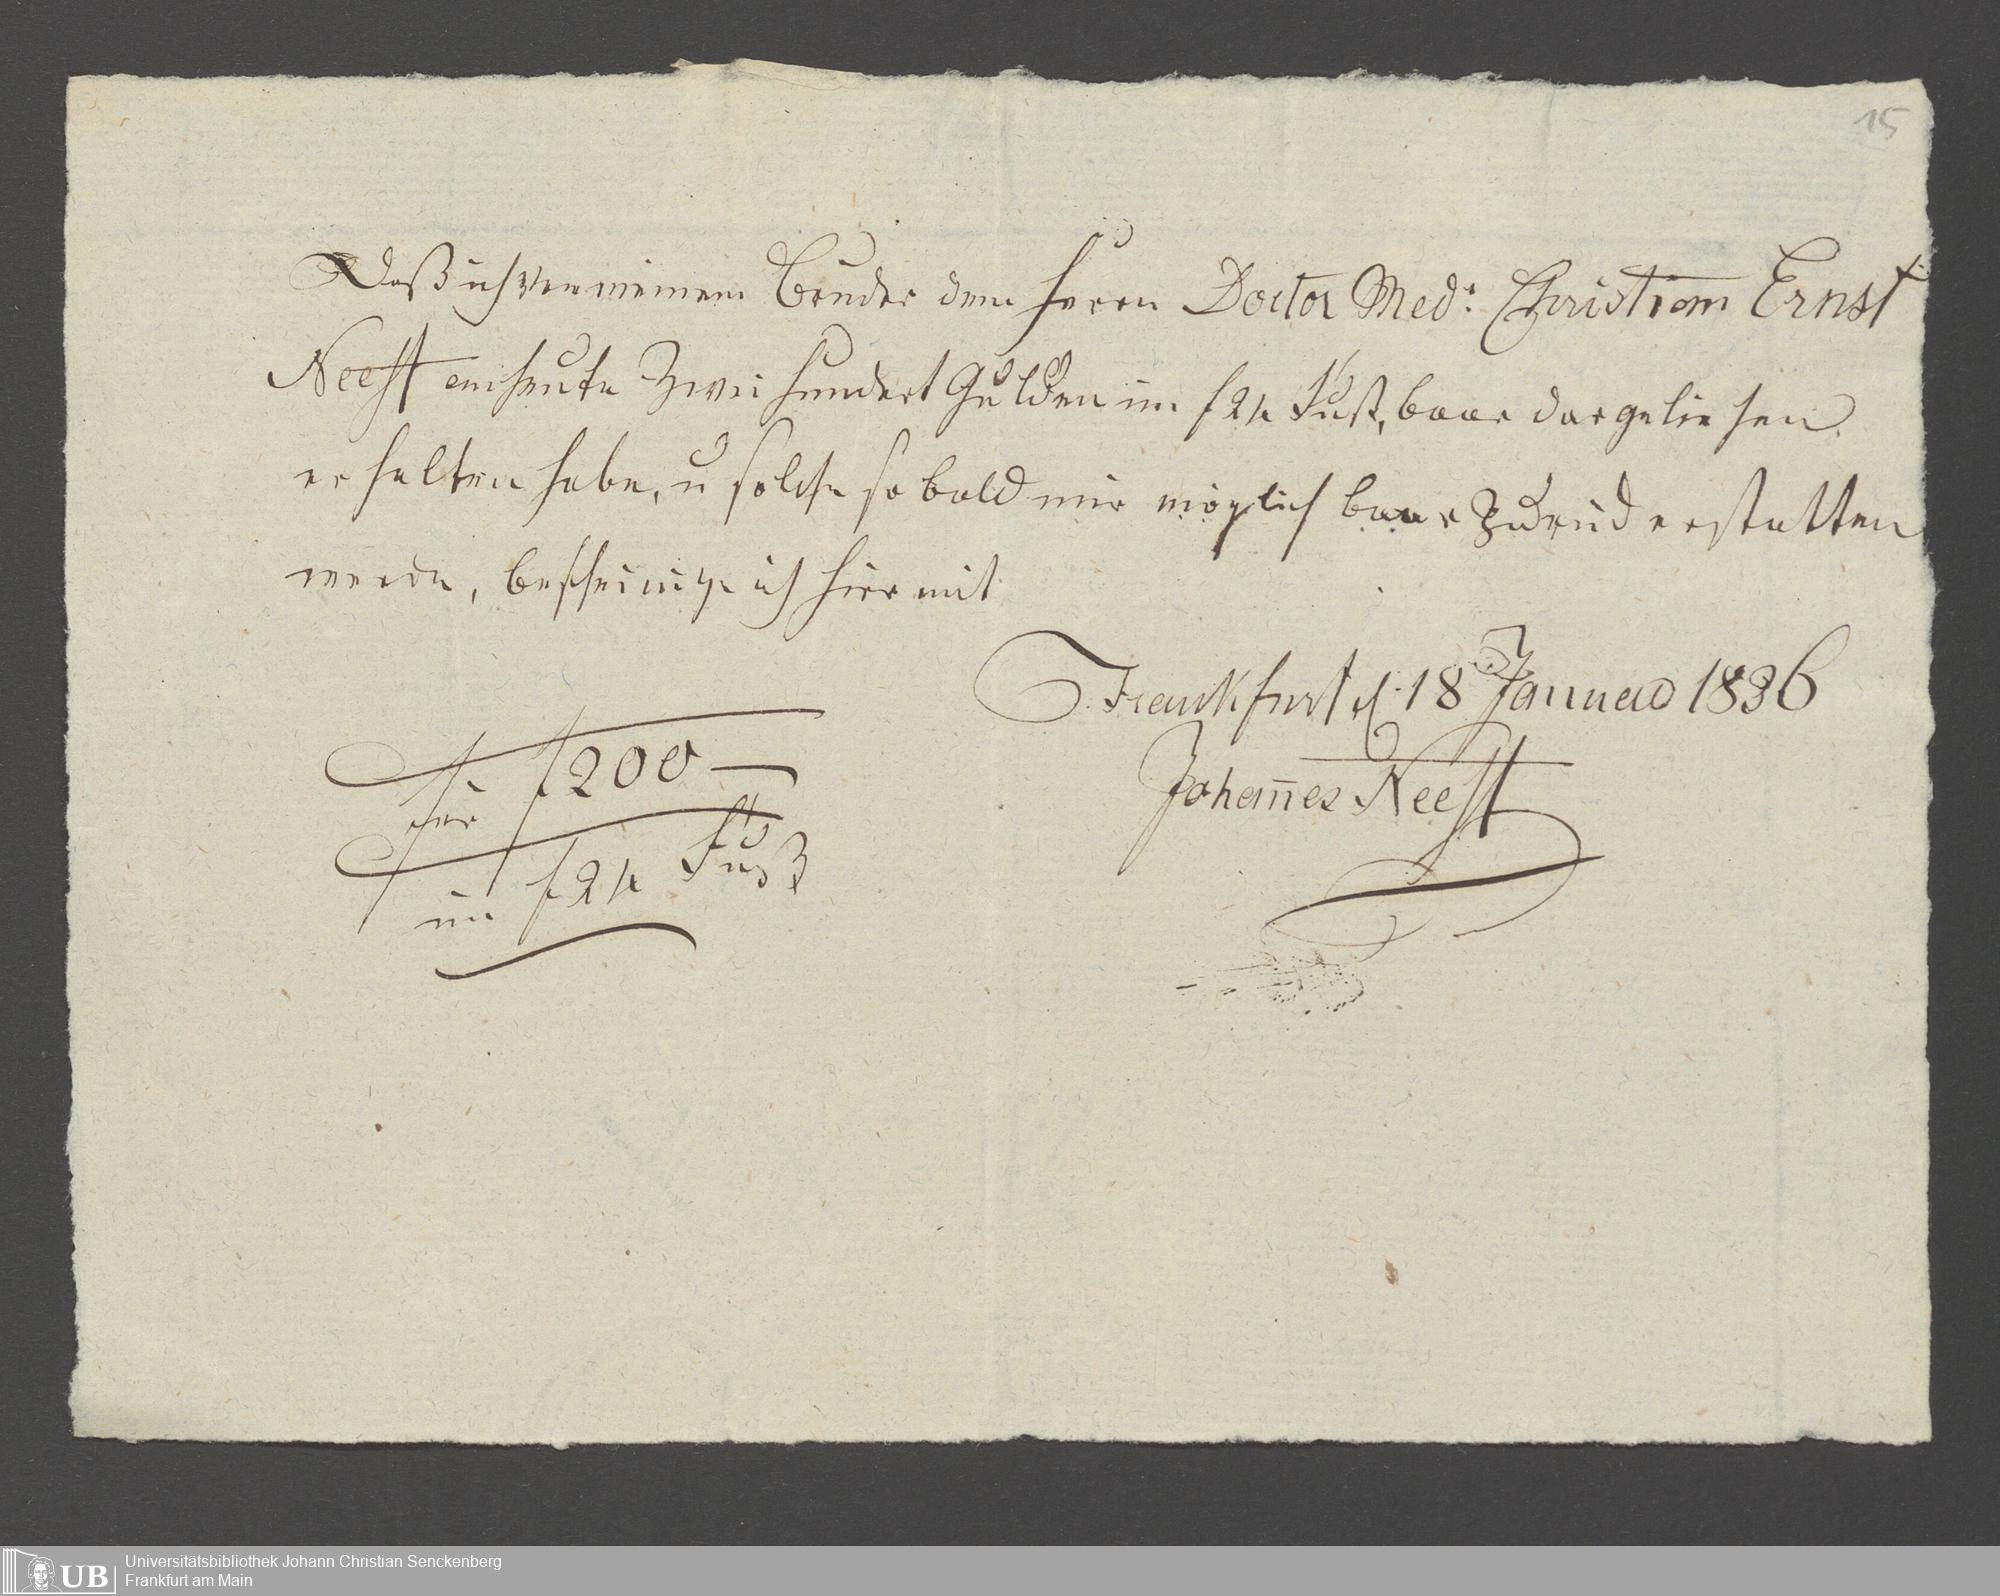 15
Daß ich von meinem Bruder dem Herrn Doctor Med: Christian Ernst
Neeff anheute Zwei hundert Gulden im f 24 Fuß, baar dargeliehen
erhalten habe, u solche so bald mir möglich baar zurück erstatten
werde, bescheinige ich hiermit
Frankfurt d. 18 Januar 1836
Johannes Neeff
f 200 —
im f 24 Fuß
UB
Universitätsbibliothek Johann Christian Senckenberg
Frankfurt am Main